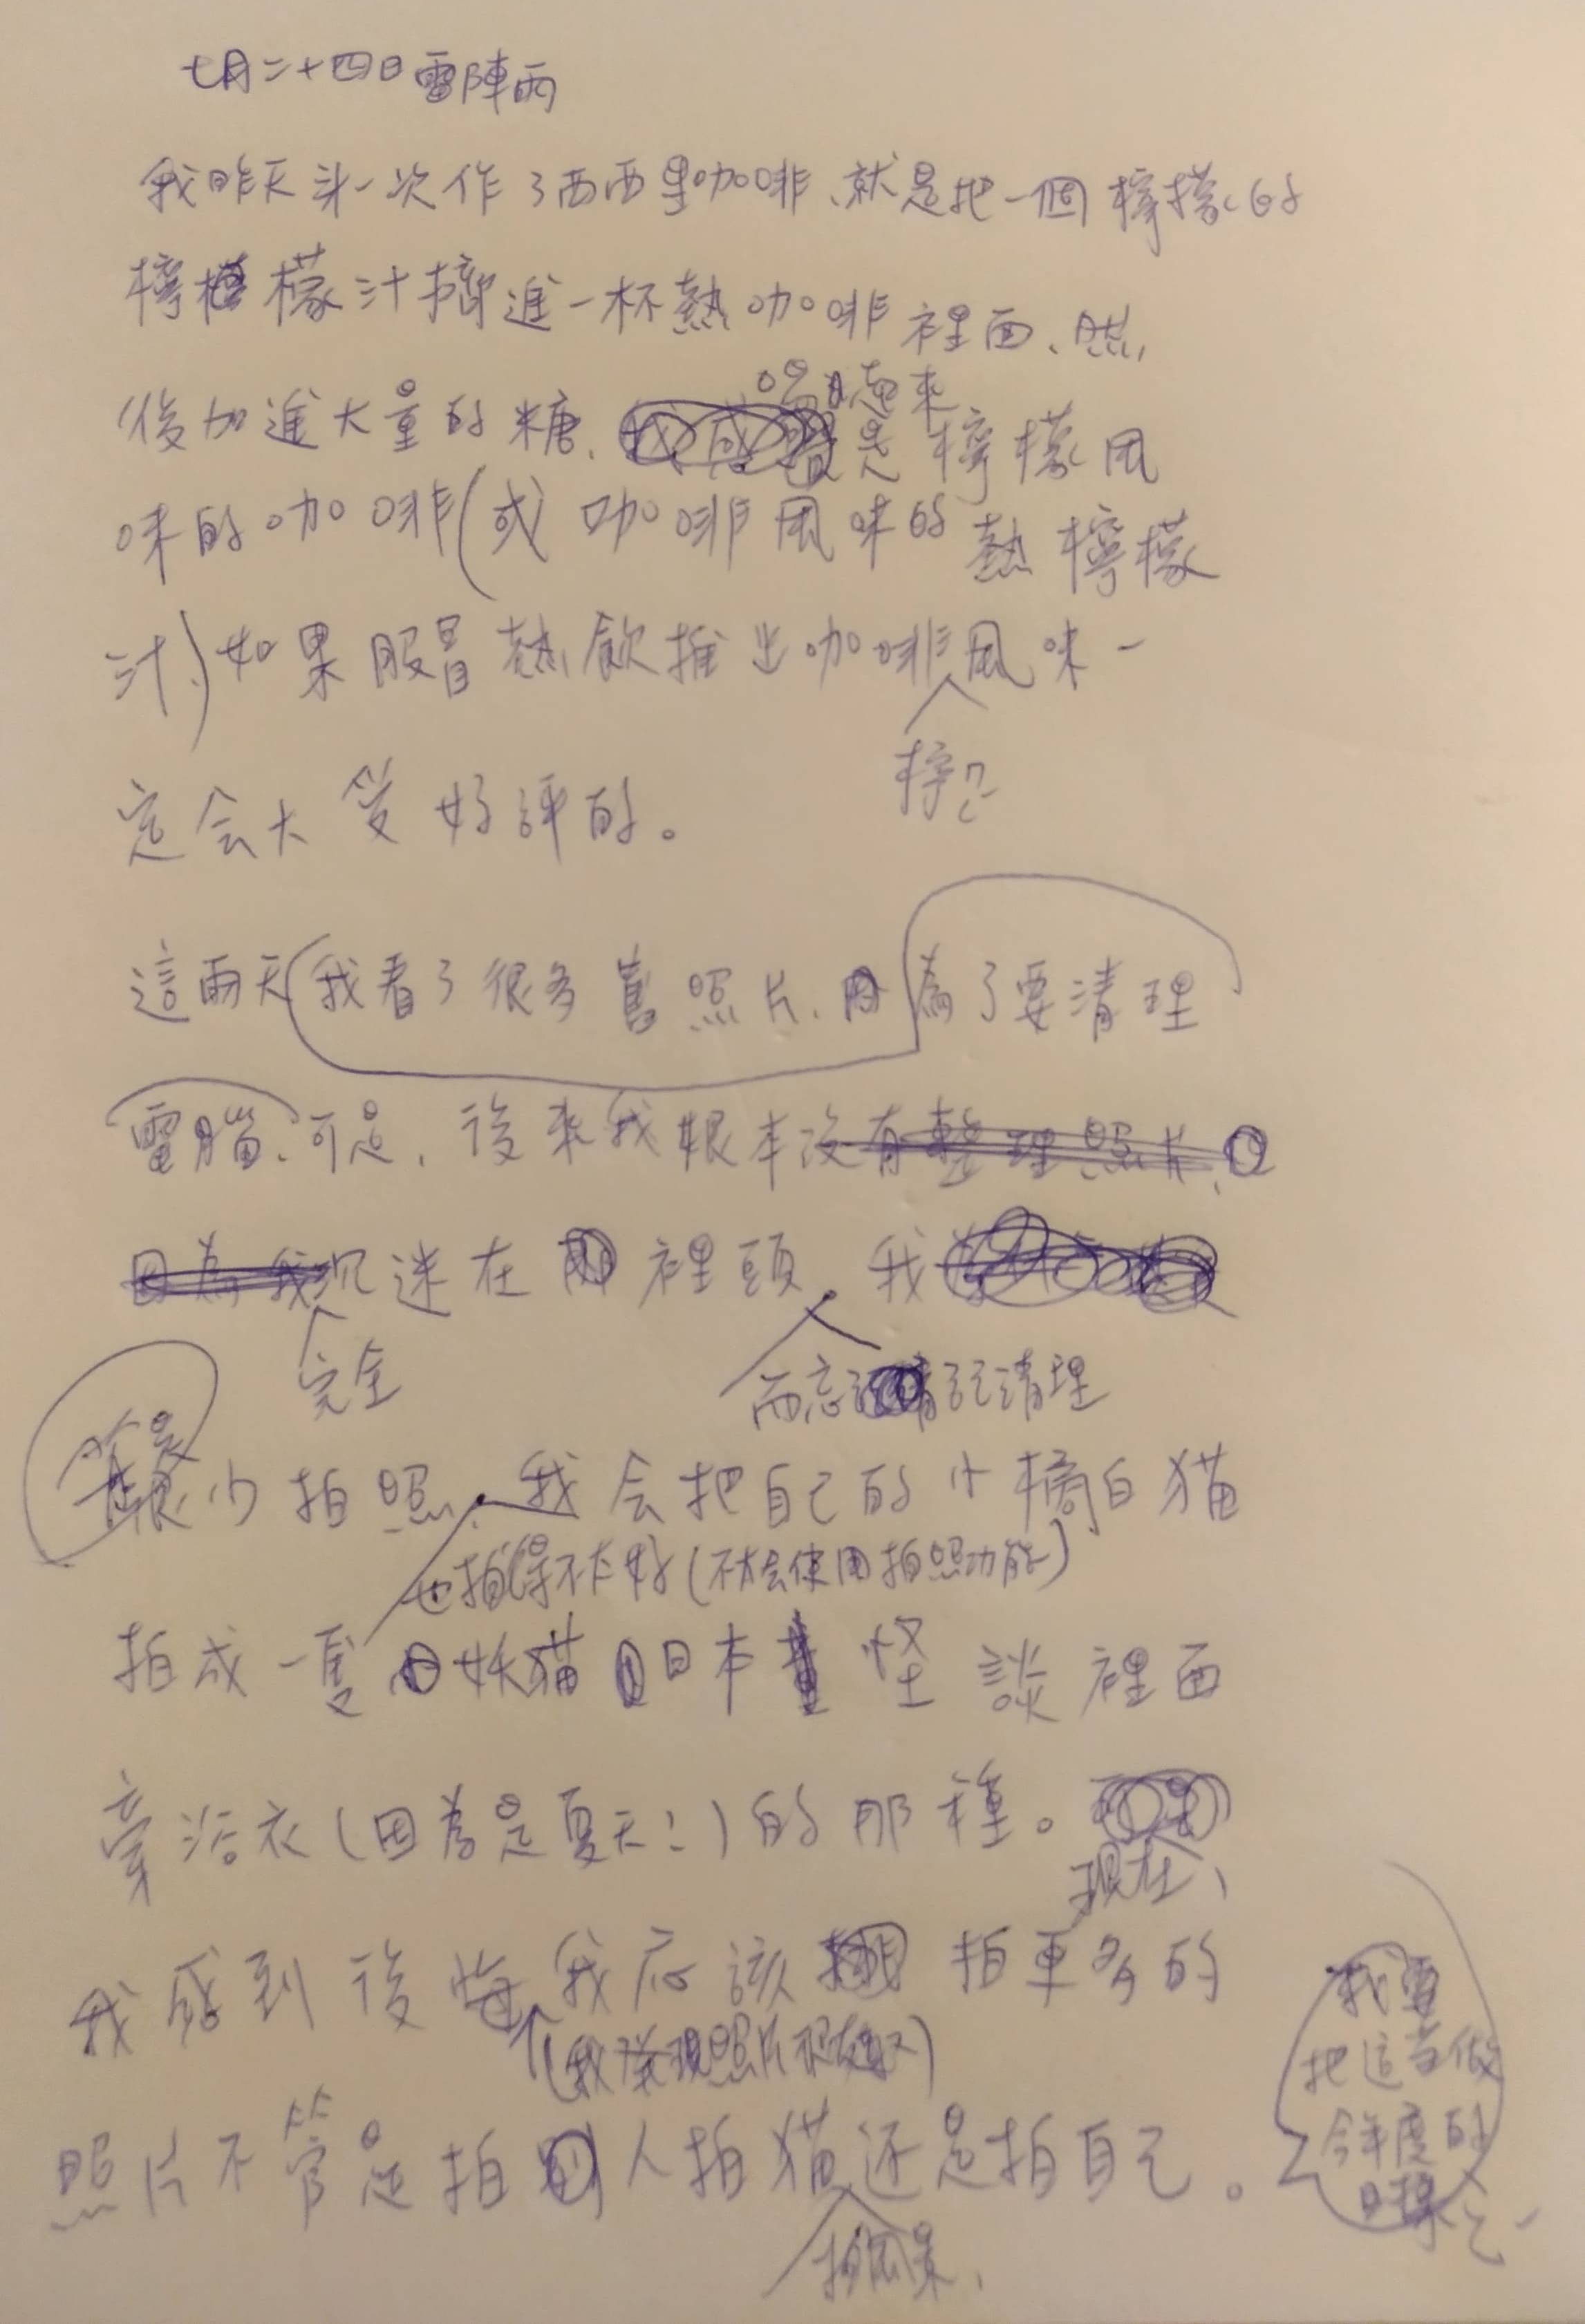 七月二十四日雷陣雨
我昨天第一次作了西西里咖啡、就是把一個檸檬的
檸檬汁擠進一杯熱咖啡裡面、然
喝起來
後加進大量的糖、是檸檬風
味的咖啡(或咖啡風味的熱檸檬
汁、)如果服冒熱飲推出咖啡風味一
檸
定会大受好評的。
這兩天我看了很多舊照片、因為了要清理
電腦、可是、後來我根本沒有整理照片、
因為我沉迷在裡頭、我
完全
而忘記了清理
很少拍照、我会把自己的小橘白猫
也拍得不太好(不太会使用拍照功能)
拍成一隻妖猫日本怪談裡面
穿浴衣(因為是夏天!)的那種。
現在、
我感到後悔我应該拍更多的
(我發現照片很有趣)
我要
把這当做
今年度的
目標之一
照片不管是拍人拍猫还是拍自己。
拍風景、